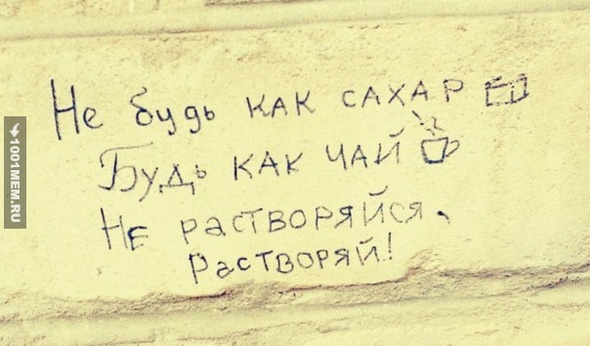 Не будь как сахар
Будь как чай
Не растворяйся,
Растворяй!
1001MEM.RU